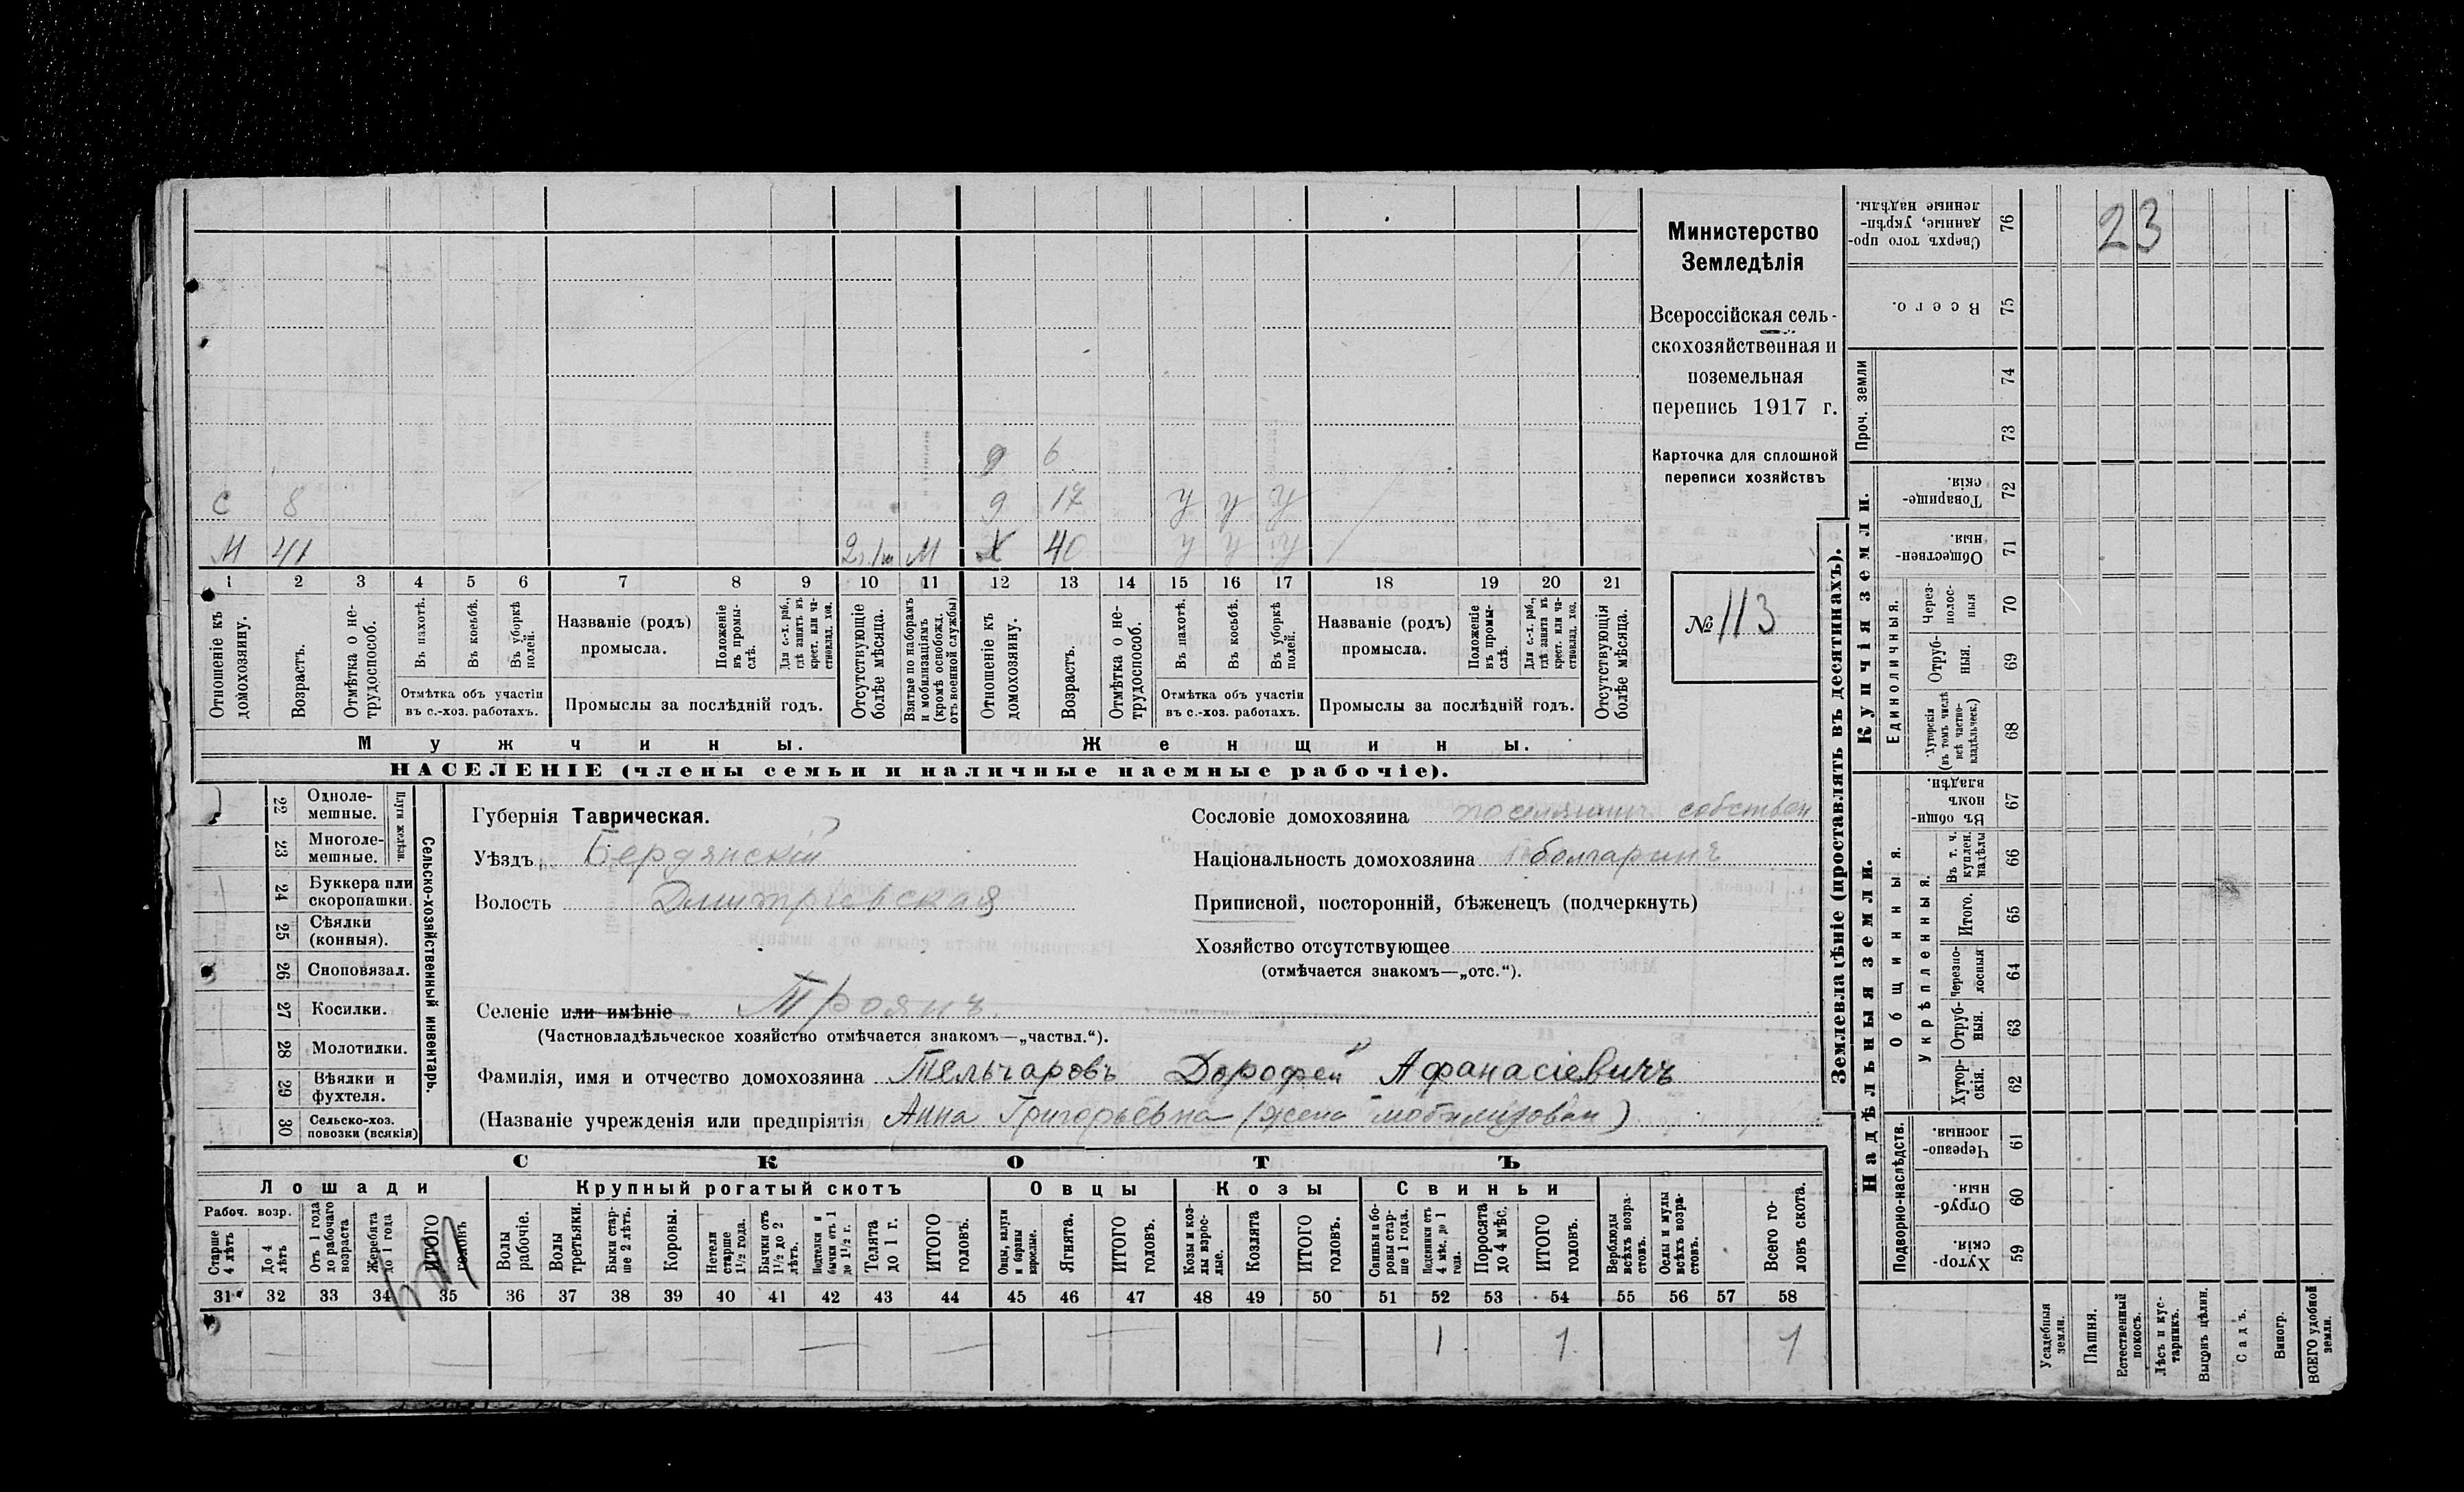 с 8 д 6
д 17 у у у
М 41 2 г. 1 м М Х 40 у у у
1 2 3 4 5 6 7 8 9 10 11 12 13 14 15 16 17 18 19 20 21
Отношеніе къ домохозяину.
Возрастъ.
Отмѣтка о не-
трудоспособ.
Въ пахотѣ.
Въ косьбѣ.
Въ уборкѣ
полей.
Отмѣтка объ участіи
въ с.-хоз. работахъ.
Названіе (родъ)
промысла.
Положеніе
въ промы-
слѣ.
Для с.-х. раб.,
гдѣ занятъ въ
крест. или ча-
стновлад. хоз.
Промыслы за послѣдній годъ.
Отсутствующіе
болѣе мѣсяца.
Взятые по наборамъ
и мобилизаціямъ
(кромѣ освобожд.
отъ военной службы)
Отношеніе къ
домохозяину.
Возрастъ.
Отмѣтка о не-
трудоспособ.
Въ пахотѣ.
Въ косьбѣ.
Въ уборкѣ
полей.
Отмѣтка объ участіи
въ с.-хоз. работахъ.
Названіе (родъ)
промысла.
Положеніе
въ промы-
слѣ.
Для с.-х. раб.,
гдѣ занята въ
крест. или ча-
стновлад. хоз.
Промыслы за послѣдній годъ.
Отсутствующія
болѣе мѣсяца.
Мужчины.
Женщины.
НАСЕЛЕНІЕ (члены семьи и наличные наемные рабочіе).
Министерство
Земледѣлія
Всероссійская сель-
скохозяйственная и
поземельная
перепись 1917 г.
Карточка для сплошной
переписи хозяйствъ
№ 113
22 Одноле-
мешные.
23 Многоле-
мешные.
Плуги желѣзн.
24 Буккера или
скоропашки.
25 Сѣялки
(конныя).
26 Сноповязал.
27 Косилки.
28 Молотилки.
29 Вѣялки и
фухтеля.
30 Сельско-хоз.
повозки (всякія)
Сельско-хозяйственный инвентарь.
Губернія Таврическая.
Уѣздъ Бердянскій
Волость Дмитріевская
Селеніе или имѣніе Троянъ
(Частновладѣльческое хозяйство отмѣчается знакомъ—„частвл.“).
Сословіе домохозяина поселянинъ собствен
Національность домохозяина болгаринъ
Приписной, посторонній, бѣженецъ (подчеркнуть)
Хозяйство отсутствующее
(отмѣчается знакомъ—„отс.“).
Фамилія, имя и отчество домохозяина Тельчаровъ Дорофей Афанасіевичъ
(Названіе учрежденія или предпріятія Анна Григорьевна (жена мобилизован)
СКОТЪ
Лошади
Рабоч. возр.
Старше
4 лѣтъ
До 4
лѣтъ
Отъ 1 года
до рабочаго
возраста
Жеребята
до 1 года
ИТОГО
головъ
Крупный рогатый скотъ
Волы
рабочіе.
Волы
третьяки.
Быки стар-
ше 2 лѣтъ.
Коровы.
Нетели
старше
1½ года.
Бычки отъ
1½ до 2
лѣтъ.
Подтелки и
бычки отъ 1
до 1½ г.
Телята
до 1 г.
ИТОГО
головъ.
Овцы
Овцы, валухи
и бараны
взрослые.
Ягнята.
ИТОГО
головъ.
Козы
Козы и коз-
лы взрос-
лые.
Козлята
ИТОГО
головъ.
Свиньи
Свиньи и бо-
ровы стар-
ше 1 года.
Подсвинки отъ
4 мѣс. до 1
года.
Поросята
до 4 мѣс.
ИТОГО
головъ.
Верблюды
всѣхъ возра-
стовъ.
Ослы и мулы
всѣхъ возра-
стовъ.
Всего го-
ловъ скота.
31 32 33 34 35 36 37 38 39 40 41 42 43 44 45 46 47 48 49 50 51 52 53 54 55 56 57 58
1 1 1
Землевладѣніе (проставлять въ десятинахъ).
Сверхъ того про-
данные, укрѣп-
ленные надѣлы.
76 23
Всего.
75
Проч. земли
74
73
Купчія земли.
Товарище-
скія.
72
Обществен-
ныя.
71
Единоличныя.
Через-
полос-
ныя
70
Отруб-
ныя.
69
Хуторскія
(въ томъ числѣ
всѣ частно-
владѣльческ.)
68
Надѣльныя земли.
Общинныя.
Въ общи-
номъ
владѣн.
67
Укрѣпленныя.
Въ т. ч.
куплен.
надѣлы
66
Итого.
65
Черезпо-
лосныя
64
Отруб-
ныя.
63
Хутор-
скія.
62
Подворно-наслѣдств.
Черезпо-
лосныя.
61
Отруб-
ныя.
60
Хутор-
скія.
59
Усадебныя
земли.
Пашня.
Естественный
покосъ.
Лѣсъ и кус-
тарникъ.
Выгонъ цѣлин.
Садъ.
Виногр.
ВСЕГО удобной
земли.